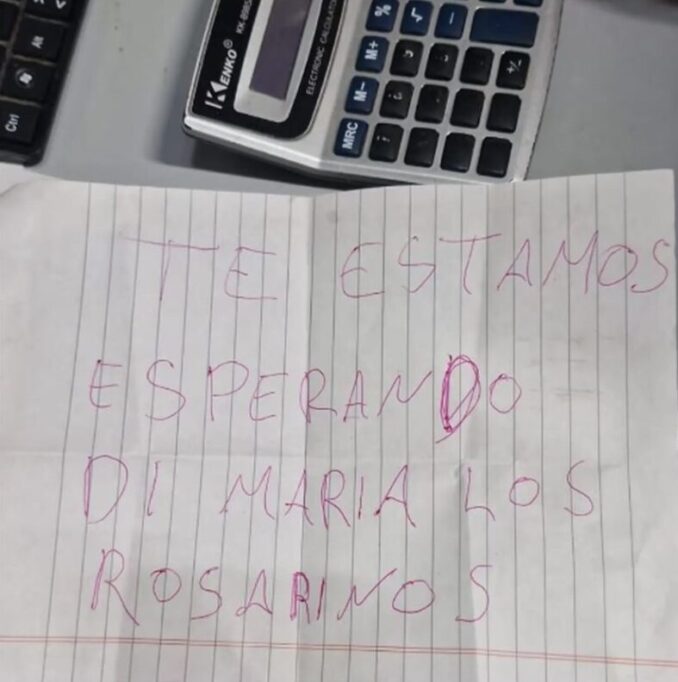 Alt
Ctrl
KENKO®
KK-8985
ELECTRONIC CALCULATOR
% √ −
M+
M−
MRC
+/-
TE ESTAMOS
ESPERANDO
DI MARIA LOS
ROSARINOS